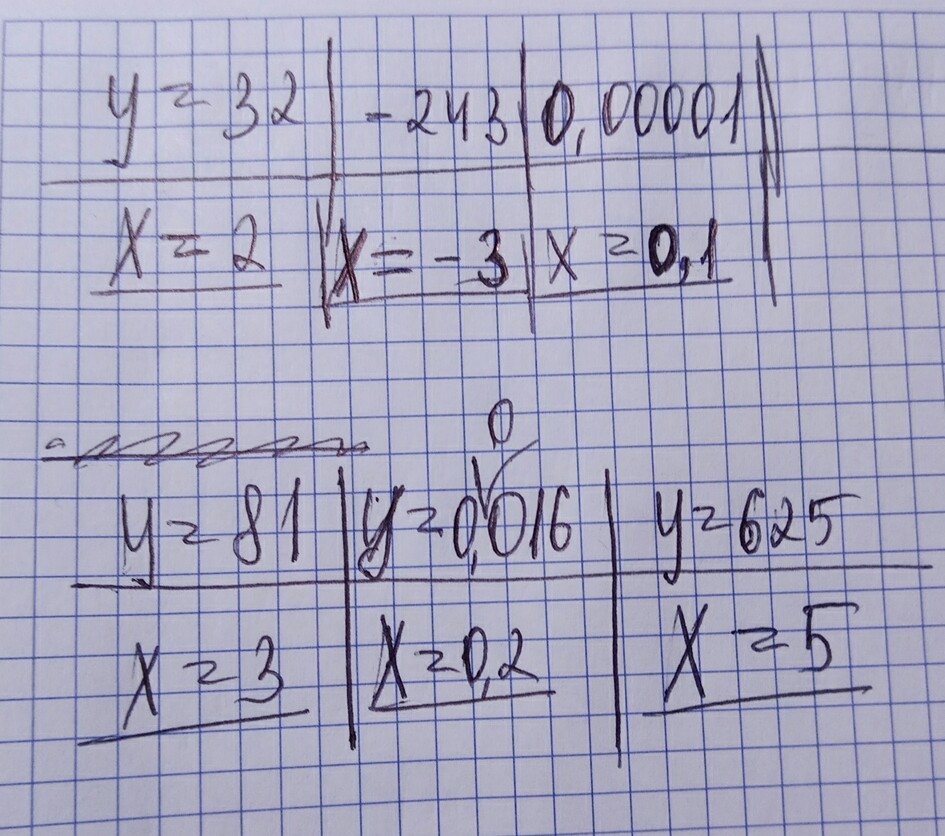 y = 32 | -243 | 0,00001
x = 2 | x = -3 | x = 0,1
0
y = 81 | y = 0,016 | y = 625
x = 3 | x = 0,2 | x = 5